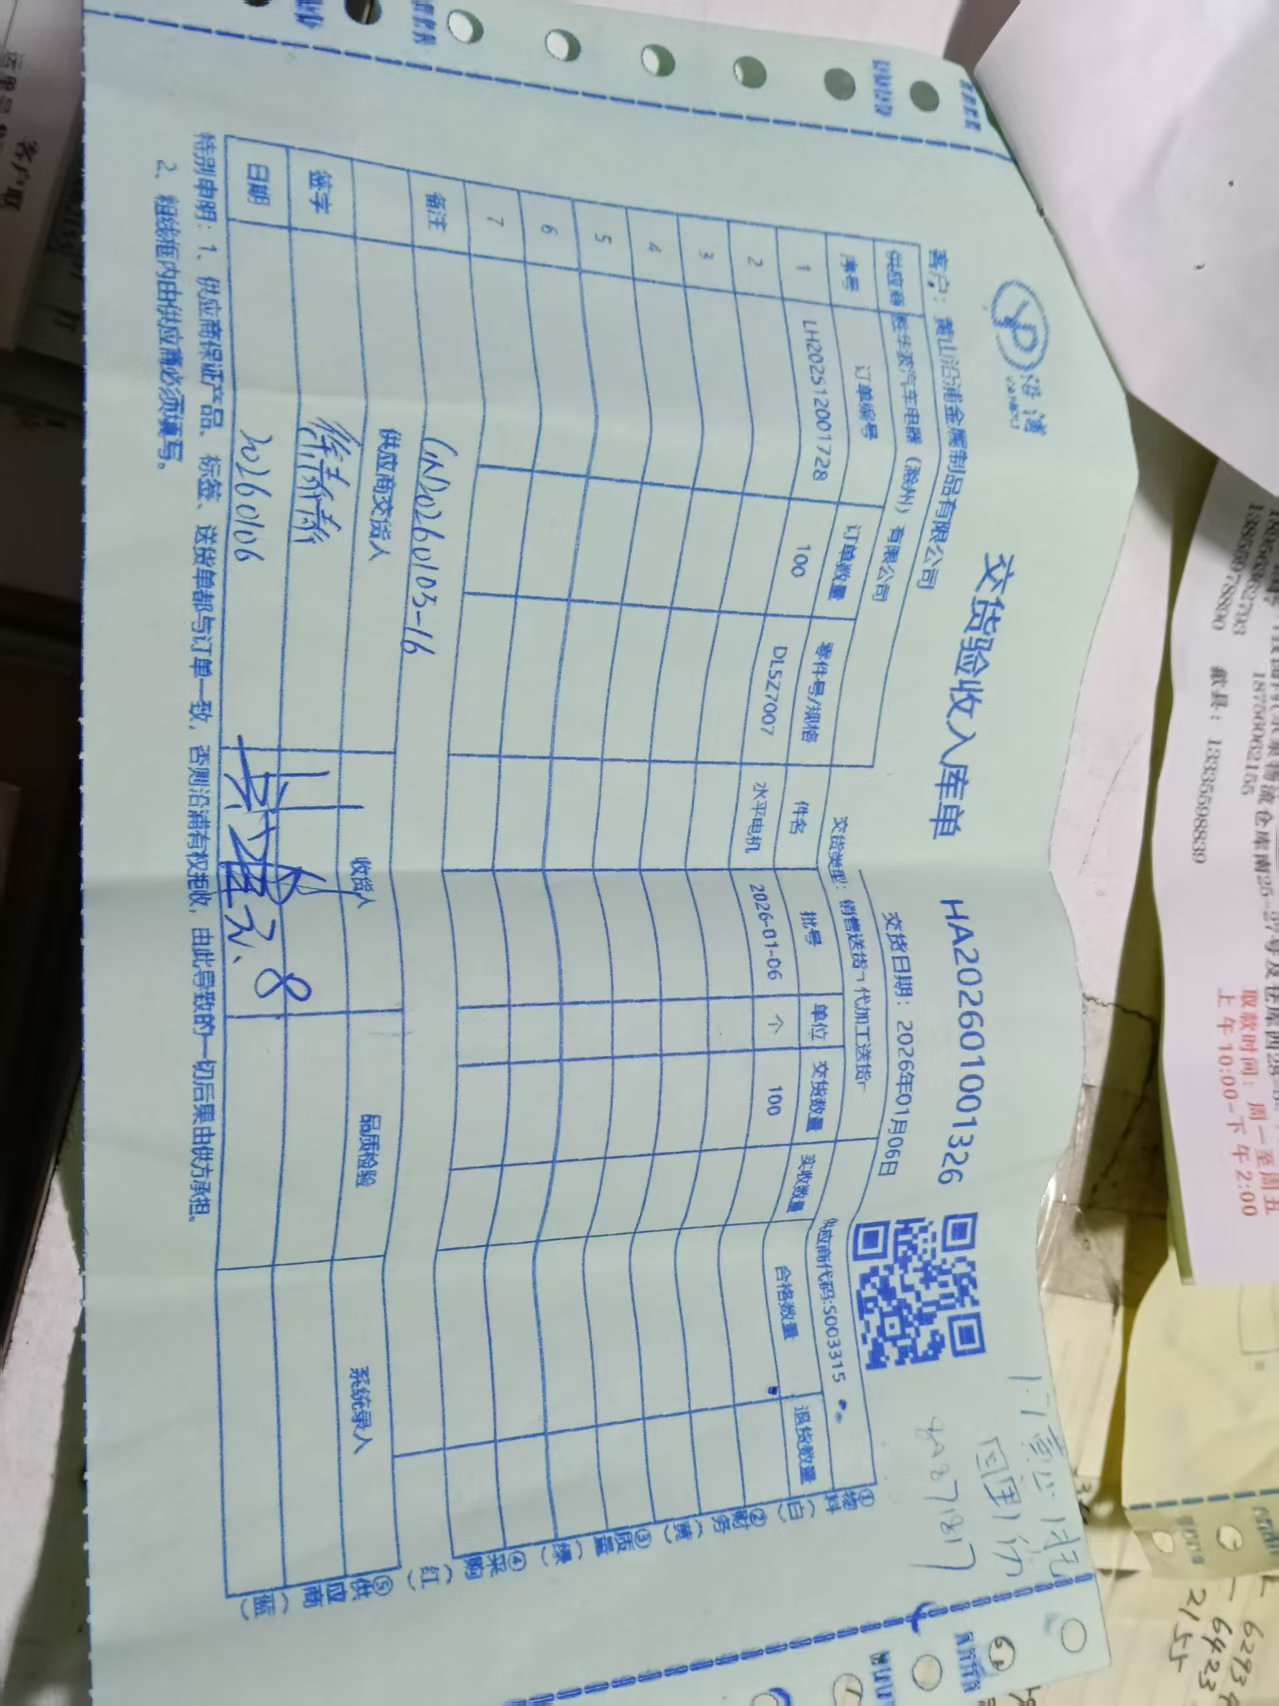 沿浦
交货验收入库单 HA202601001326
客户：黄山沿浦金属制品有限公司 交货日期：2026年01月06日
供应商 胜华波汽车电器（滁州）有限公司 交货类型：销售送货 代加工送货 供应商代码:S003315
序号 订单编号 订单数量 零件号/规格 件名 批号 单位 交货数量 实收数量 合格数量 退货数量
1 LH202512001728 100 DL5Z7007 水平电机 2026-01-06 个 100
2
3
4
5
6
7
备注 GN20260105-16
供应商交货人 收货人 品质检验 系统录入
签字
日期 20260106
特别申明：1、供应商保证产品、标签、送货单都与订单一致，否则沿浦有权拒收，由此导致的一切后果由供方承担。
2、粗线框内由供应商必须填写。
①物料（白）②财务（黄）③质量（绿）④采购（红）⑤供应商（蓝）
回单1份
13856978890 歙县：13335598839
18756062155
取款时间：周一至周五
上午10:00-下午2:00
客户联
6293
6423
2155